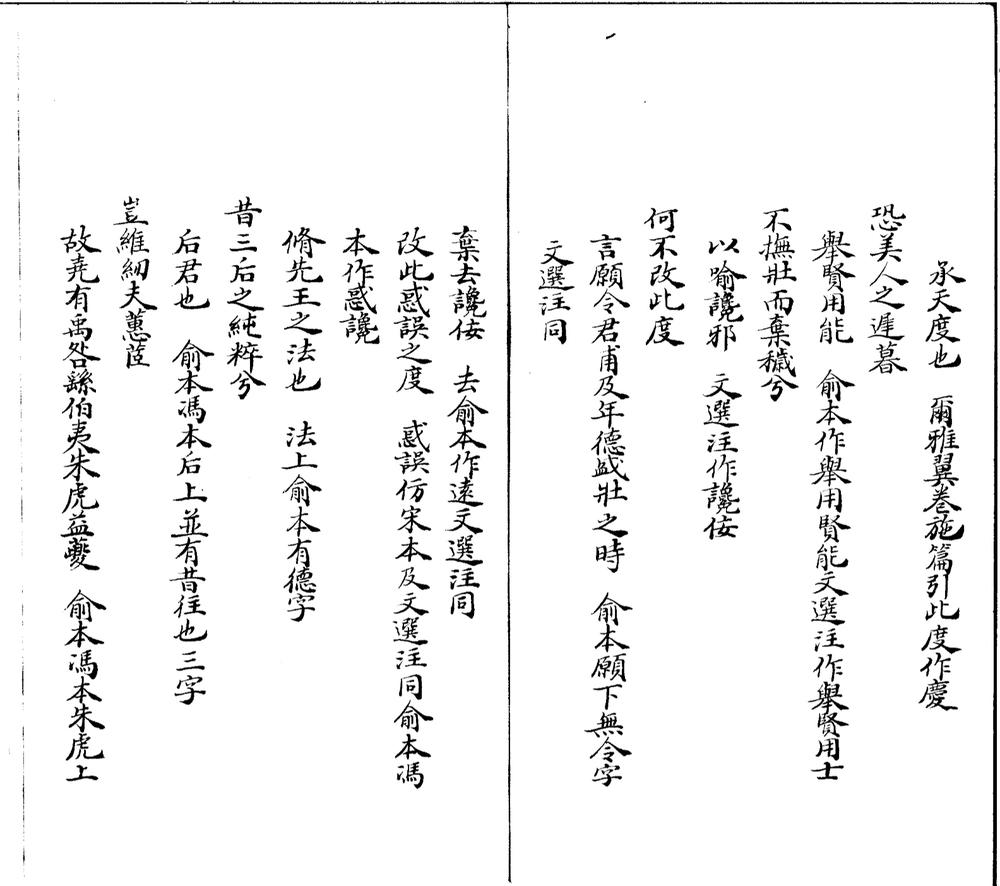 承天度也　爾雅翼卷施篇引此度作慶
恐美人之遲暮
舉賢用能　俞本作舉用賢能文選注作舉賢用士
不撫壯而棄穢兮
以喻讒邪　文選注作讒佞
何不改此度
言願令君甫及年德盛壯之時　俞本願下無令字
文選注同
棄去讒佞　去俞本作遠文選注同
改此惑誤之度　惑誤仿宋本及文選注同俞本馮
本作惑讒
脩先王之法也　法上俞本有德字
昔三后之純粹兮
后君也　俞本馮本后上並有昔往也三字
豈維紉夫蕙茝
故堯有禹咎繇伯夷朱虎益夔　俞本馮本朱虎上